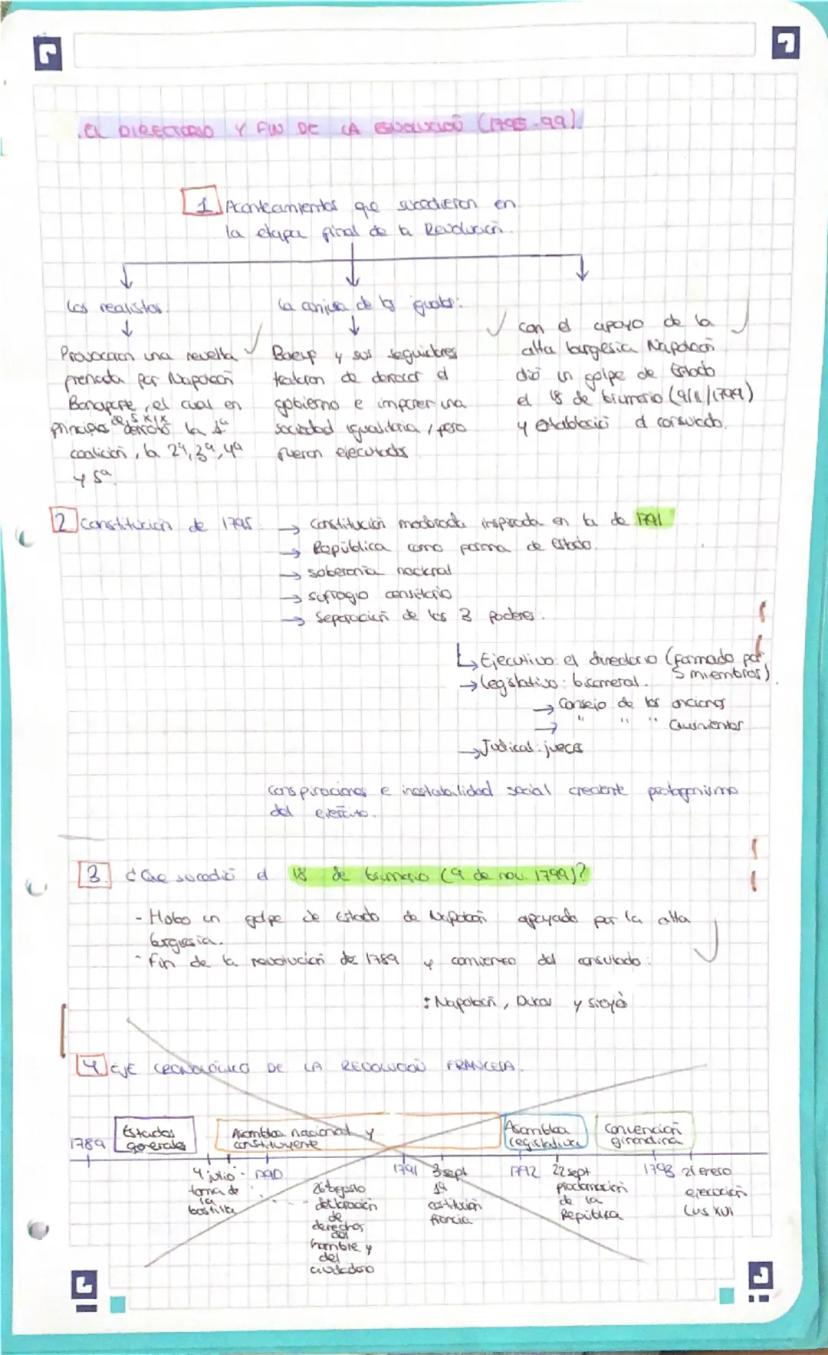 EL DIRECTORIO Y FIN DE LA REVOLUCIÓN (1795-99).
1 Acontecimientos que sucedieron en
la etapa final de la Revolución.
Los realistas.
Provocaron una revuelta
frenada por Napoleón
Bonaparte, el cual en
principios de S XIX derrotó la 1ª
coalición, la 2ª, 3ª, 4ª
y 5ª
La conjura de los iguales:
Baeuf y sus seguidores
trataron de derrocar el
gobierno e imponer una
sociedad igualitaria, pero
fueron ejecutados
con el apoyo de la
alta burgesia Napoleón
dió un golpe de Estado
el 18 de brumario (9/11/1799)
y estableció el consulado.
2 Constitución de 1795
→ Constitución moderada inspirada en la de 1791
→ República como forma de Estado.
→ soberanía nacional
→ sufragio censitario
→ Separación de los 3 poderes.
↳ Ejecutivo: el directorio (formado por
5 miembros)
→ Legislativo: bicameral.
→ Consejo de los ancianos
→ " " " Quinientos
→ Judicial: jueces
conspiraciones e inestabilidad social creciente protagonismo
del ejército.
3 ¿Que sucedió el 18 de brumario (9 de nov. 1799)?
- Hubo un golpe de estado de Napoleón apoyado por la alta
burgesia.
- Fin de la revolución de 1789 y comienzo del consulado:
: Napoleón, Ducos y Sieyè
4 EJE CRONOLÓGICO DE LA REVOLUCIÓN FRANCESA.
1789
Estados
generales
Asamblea nacional y
constituyente
Asamblea
legislativa
Convención
girondina
4 julio -
toma de
la
bastilla
1790
26 agosto
declaración
de
derechos
del
hombre y
del
ciudadano
1791
3 sept
1ª
constitución
francia
1792
22 sept
proclamación
de la
República
1793
21 enero
ejecución
Luis XVI